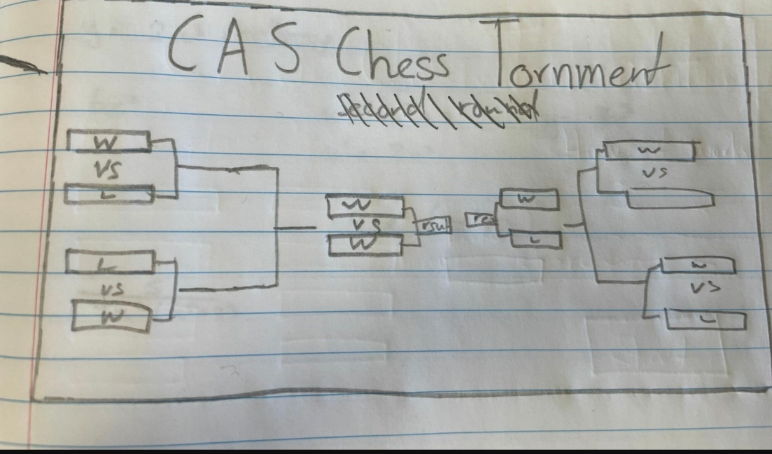 CAS Chess Tornment
W
vs
L
L
vs
W
W
vs
W
W
L
W
vs
vs
L